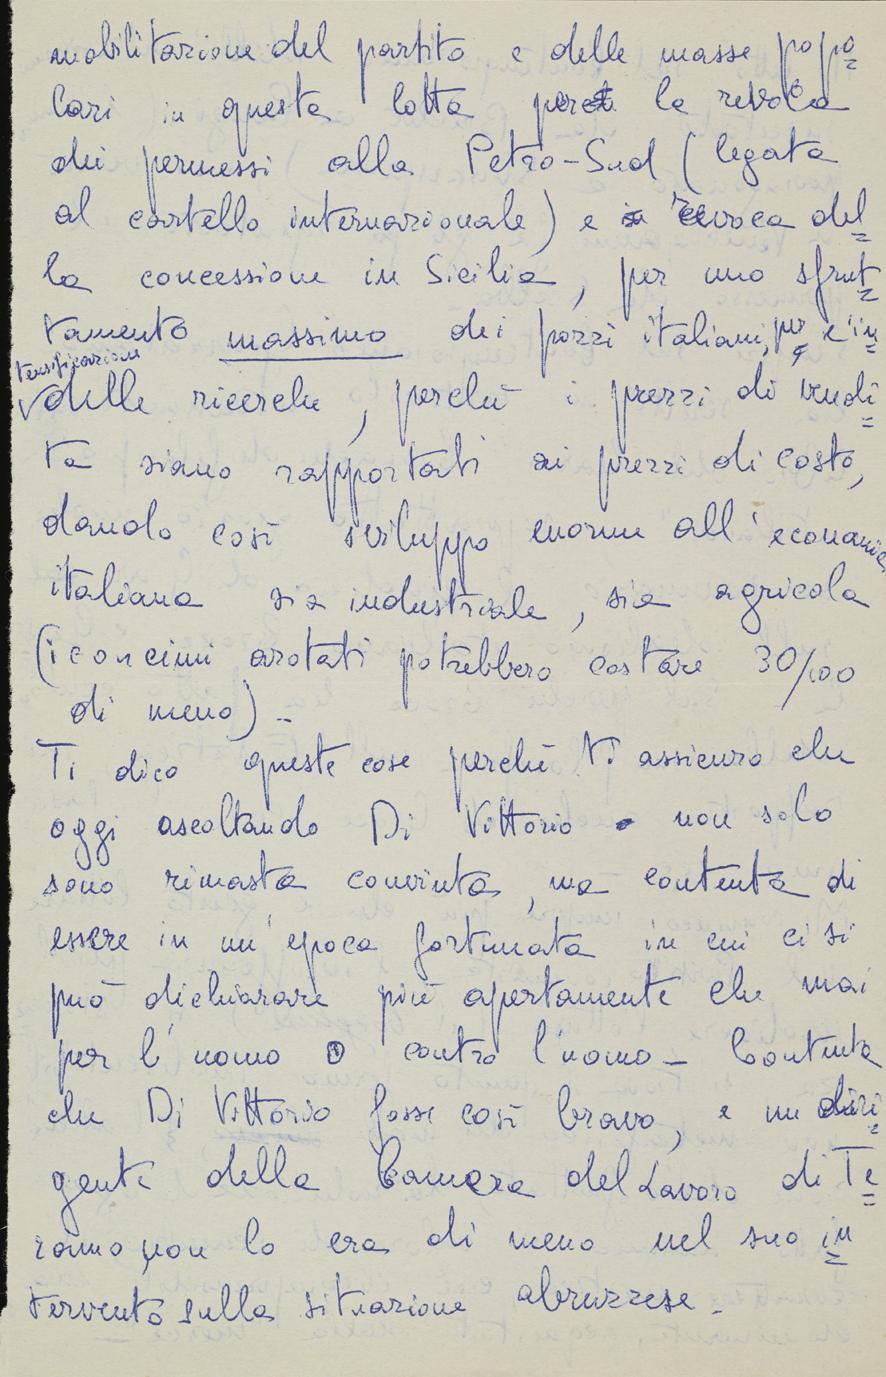 mobilitazione del partito e delle masse popo=
lari in questa lotta per la revoca
dei permessi alla Petro-Sud (legata
al cartello internazionale) e revoca del=
la concessione in Sicilia, per uno sfrut=
tamento massimo dei pozzi italiani, per l'in=
tensificazione
delle ricerche, perchè i prezzi di vendi=
ta siano rapportati ai prezzi di costo,
dando così sviluppo enorme all'economia
italiana sia industriale, sia agricola
(i concimi azotati potrebbero costare 30/100
di meno) -
Ti dico queste cose perchè ti assicuro che
oggi ascoltando Di Vittorio non solo
sono rimasta convinta, ma contenta di
essere in un'epoca fortunata in cui ci si
può dichiarare più apertamente che mai
per l'uomo o contro l'uomo - Contenta
che Di Vittorio fosse così bravo, e un diri=
gente della Camera del Lavoro di Te=
ramo non lo era di meno nel suo in=
tervento sulla situazione abruzzese -